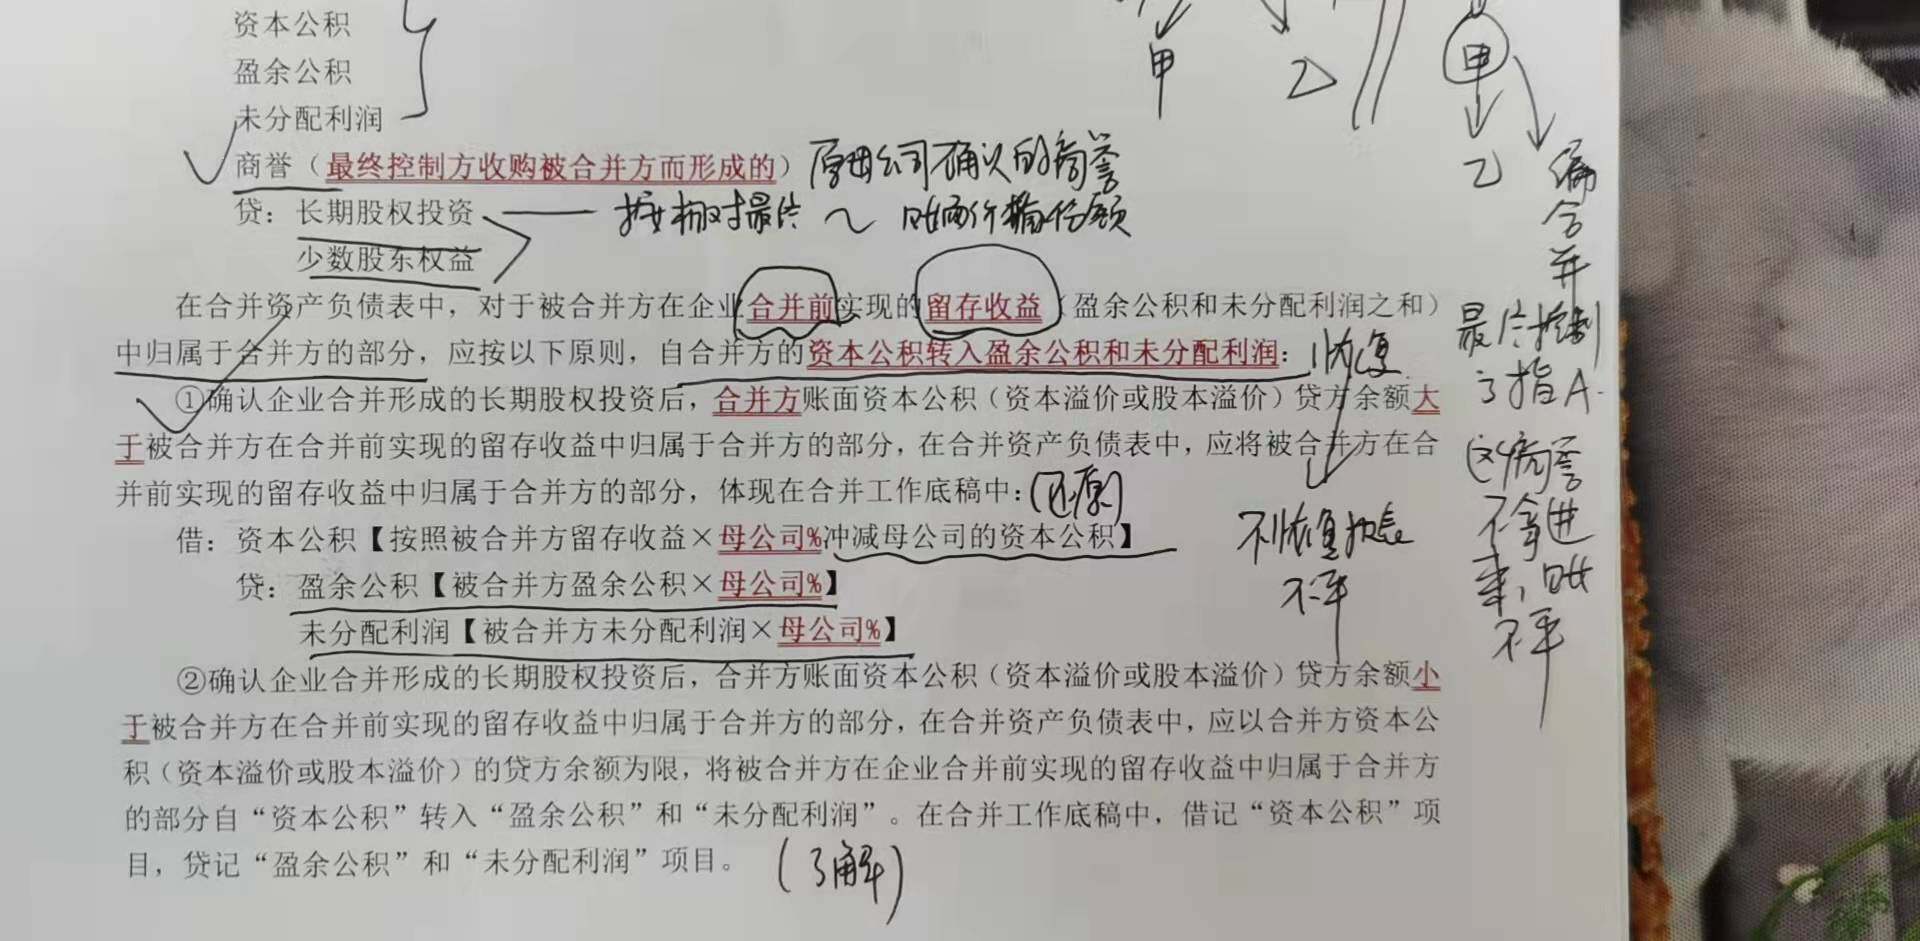 资本公积
盈余公积
未分配利润
甲
乙
甲
乙
商誉（最终控制方收购被合并方而形成的）原母公司确认的商誉
贷：长期股权投资
少数股东权益
在合并资产负债表中，对于被合并方在企业合并前实现的留存收益（盈余公积和未分配利润之和）
中归属于合并方的部分，应按以下原则，自合并方的资本公积转入盈余公积和未分配利润：恢复
①确认企业合并形成的长期股权投资后，合并方账面资本公积（资本溢价或股本溢价）贷方余额大
于被合并方在合并前实现的留存收益中归属于合并方的部分，在合并资产负债表中，应将被合并方在合
并前实现的留存收益中归属于合并方的部分，体现在合并工作底稿中：（还原）
借：资本公积【按照被合并方留存收益×母公司%冲减母公司的资本公积】
贷：盈余公积【被合并方盈余公积×母公司%】
未分配利润【被合并方未分配利润×母公司%】
②确认企业合并形成的长期股权投资后，合并方账面资本公积（资本溢价或股本溢价）贷方余额小
于被合并方在合并前实现的留存收益中归属于合并方的部分，在合并资产负债表中，应以合并方资本公
积（资本溢价或股本溢价）的贷方余额为限，将被合并方在企业合并前实现的留存收益中归属于合并方
的部分自“资本公积”转入“盈余公积”和“未分配利润”。在合并工作底稿中，借记“资本公积”项
目，贷记“盈余公积”和“未分配利润”项目。（了解）
不恢复报表
不平
合
并
最终控制
方指A
这商誉
不拿进
来，
不平